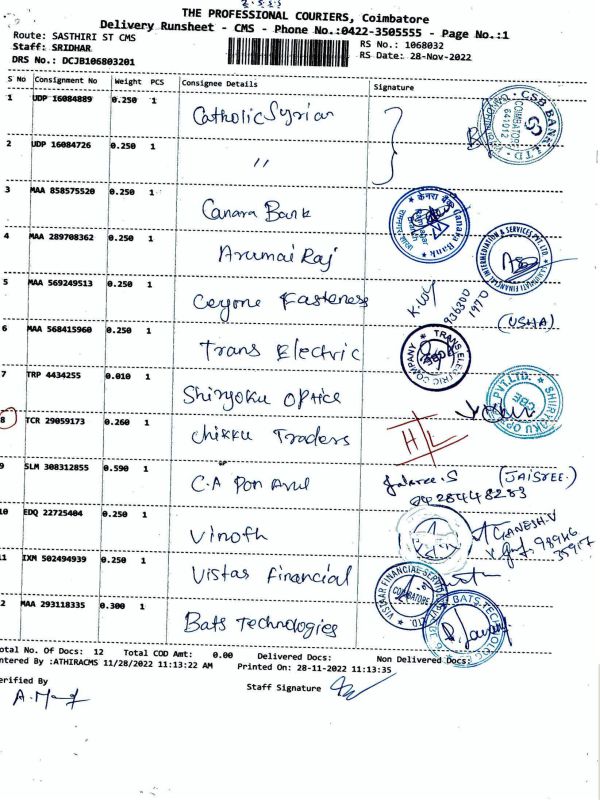 THE PROFESSIONAL COURIERS, Coimbatore
Delivery Runsheet - CMS - Phone No.:0422-3505555 - Page No.:1
Route: SASTHIRI ST CMS
RS No.: 1068032
Staff: SRIDHAR
RS Date: 28-Nov-2022
DRS No.: DCJB106803201
S No Consignment No Weight PCS Consignee Details Signature
1 UDP 16084889 0.250 1 Catholic Syrian
CSB BANK LTD
COIMBATORE
641012
2 UDP 16084726 0.250 1 "
3 MAA 858575520 0.250 1 Canara Bank
केनरा बैंक Canara Bank
4 MAA 289708362 0.250 1 Arumai Raj
FINANCIAL INTERMEDIATION & SERVICES PVT. LTD
5 MAA 569249513 0.250 1 Ceyone Fasteness
936300
(USHA)
6 MAA 568415960 0.250 1 Trans Electric
TRANS ELECTRIC COMPANY
7 TRP 4434255 0.010 1 Shiryoku Optics
SHIRYOKU OPTICS PVT.LTD.
CBE
8 TCR 29059173 0.260 1 Chikku Traders
H L
9 SLM 308312855 0.590 1 C.A Pon Arul
(JAISREE.)
10 EDQ 22725404 0.250 1 Vinoth
GANESH.V
98946
35917
11 IXM 502494939 0.250 1 Vistas Financial
VISTAAR FINANCIAL SERVICES
COIMBATORE
12 MAA 293118335 0.300 1 Bats Technologies
BATS TECHNOLOGIES
Total No. Of Docs: 12 Total COD Amt: 0.00 Delivered Docs: Non Delivered Docs:
ntered By :ATHIRACMS 11/28/2022 11:13:22 AM Printed On: 28-11-2022 11:13:35
erified By
Staff Signature